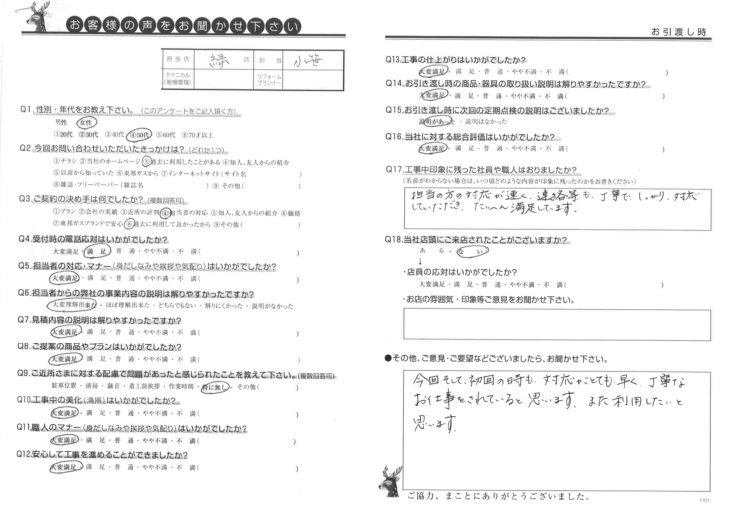 お客様の声をお聞かせ下さい
担当店 緑店 担当 小笹
テクニカル(現場管理) リフォームプランナー
Q1.性別・年代をお教え下さい。(このアンケートをご記入頂く方)
男性 女性
①20代 ②30代 ③40代 ④50代 ⑤60代 ⑥70才以上
Q2.今回お問い合わせいただいたきっかけは?(どれか1つ)
①チラシ ②当社のホームページ ③過去に利用したことがある ④知人、友人からの紹介
⑤以前から知っていた ⑥東邦ガスから ⑦インターネットサイト(サイト名 )
⑧雑誌・フリーペーパー(雑誌名 ) ⑨その他( )
Q3.ご契約の決め手は何でしたか?(複数回答可)
①プラン ②会社の実績 ③近所の評判 ④担当者の対応 ⑤知人、友人からの紹介 ⑥価格
⑦東邦ガスブランドで安心 ⑧過去に利用して良かったから ⑨その他( )
Q4.受付時の電話応対はいかがでしたか?
大変満足・満 足・普 通・やや不満・不 満( )
Q5.担当者の対応・マナー(身だしなみや挨拶や気配り)はいかがでしたか?
大変満足・満 足・普 通・やや不満・不 満( )
Q6.担当者からの弊社の事業内容の説明は解りやすかったですか?
大変理解出来た・ほぼ理解出来た・どちらでもない・解りにくかった・説明がなかった
Q7.見積内容の説明は解りやすかったですか?
大変満足・満 足・普 通・やや不満・不 満( )
Q8.ご提案の商品やプランはいかがでしたか?
大変満足・満 足・普 通・やや不満・不 満( )
Q9.ご近所さまに対する配慮で問題があったと感じられたことを教えて下さい。(複数回答可)
駐車位置・清掃・騒音・着工前挨拶・作業時間・特に無し・その他( )
Q10.工事中の美化(清掃)はいかがでしたか?
大変満足・満 足・普 通・やや不満・不 満( )
Q11.職人のマナー(身だしなみや挨拶や気配り)はいかがでしたか?
大変満足・満 足・普 通・やや不満・不 満( )
Q12.安心して工事を進めることができましたか?
大変満足・満 足・普 通・やや不満・不 満( )
お引渡し時
Q13.工事の仕上がりはいかがでしたか?
大変満足・満 足・普 通・やや不満・不 満( )
Q14.お引き渡し時の商品・器具の取り扱い説明は解りやすかったですか?
大変満足・満 足・普 通・やや不満・不 満( )
Q15.お引き渡し時に次回の定期点検の説明はございましたか?
説明があった・説明はなかった
Q16.当社に対する総合評価はいかがでしたか?
大変満足・満 足・普 通・やや不満・不 満( )
Q17.工事中印象に残った社員や職人はおりましたか?
(名前がわからない場合は、いつ頃どのような内容が印象に残ったのかをお書きください)
担当の方の対応が速く、連絡等も、丁寧で、しっかり対応
していただき、たいへん満足しています。
Q18.当社店頭にご来店されたことがございますか?
ある・ない
↓
・店員の応対はいかがでしたか?
大変満足・満 足・普 通・やや不満・不 満( )
・お店の雰囲気・印象等ご意見をお聞かせ下さい。
●その他、ご意見・ご要望などございましたら、お聞かせ下さい。
今回そして、初回の時も、対応がとても早く、丁寧な
お仕事をされていると思います。また利用したいと
思います。
ご協力、まことにありがとうございました。